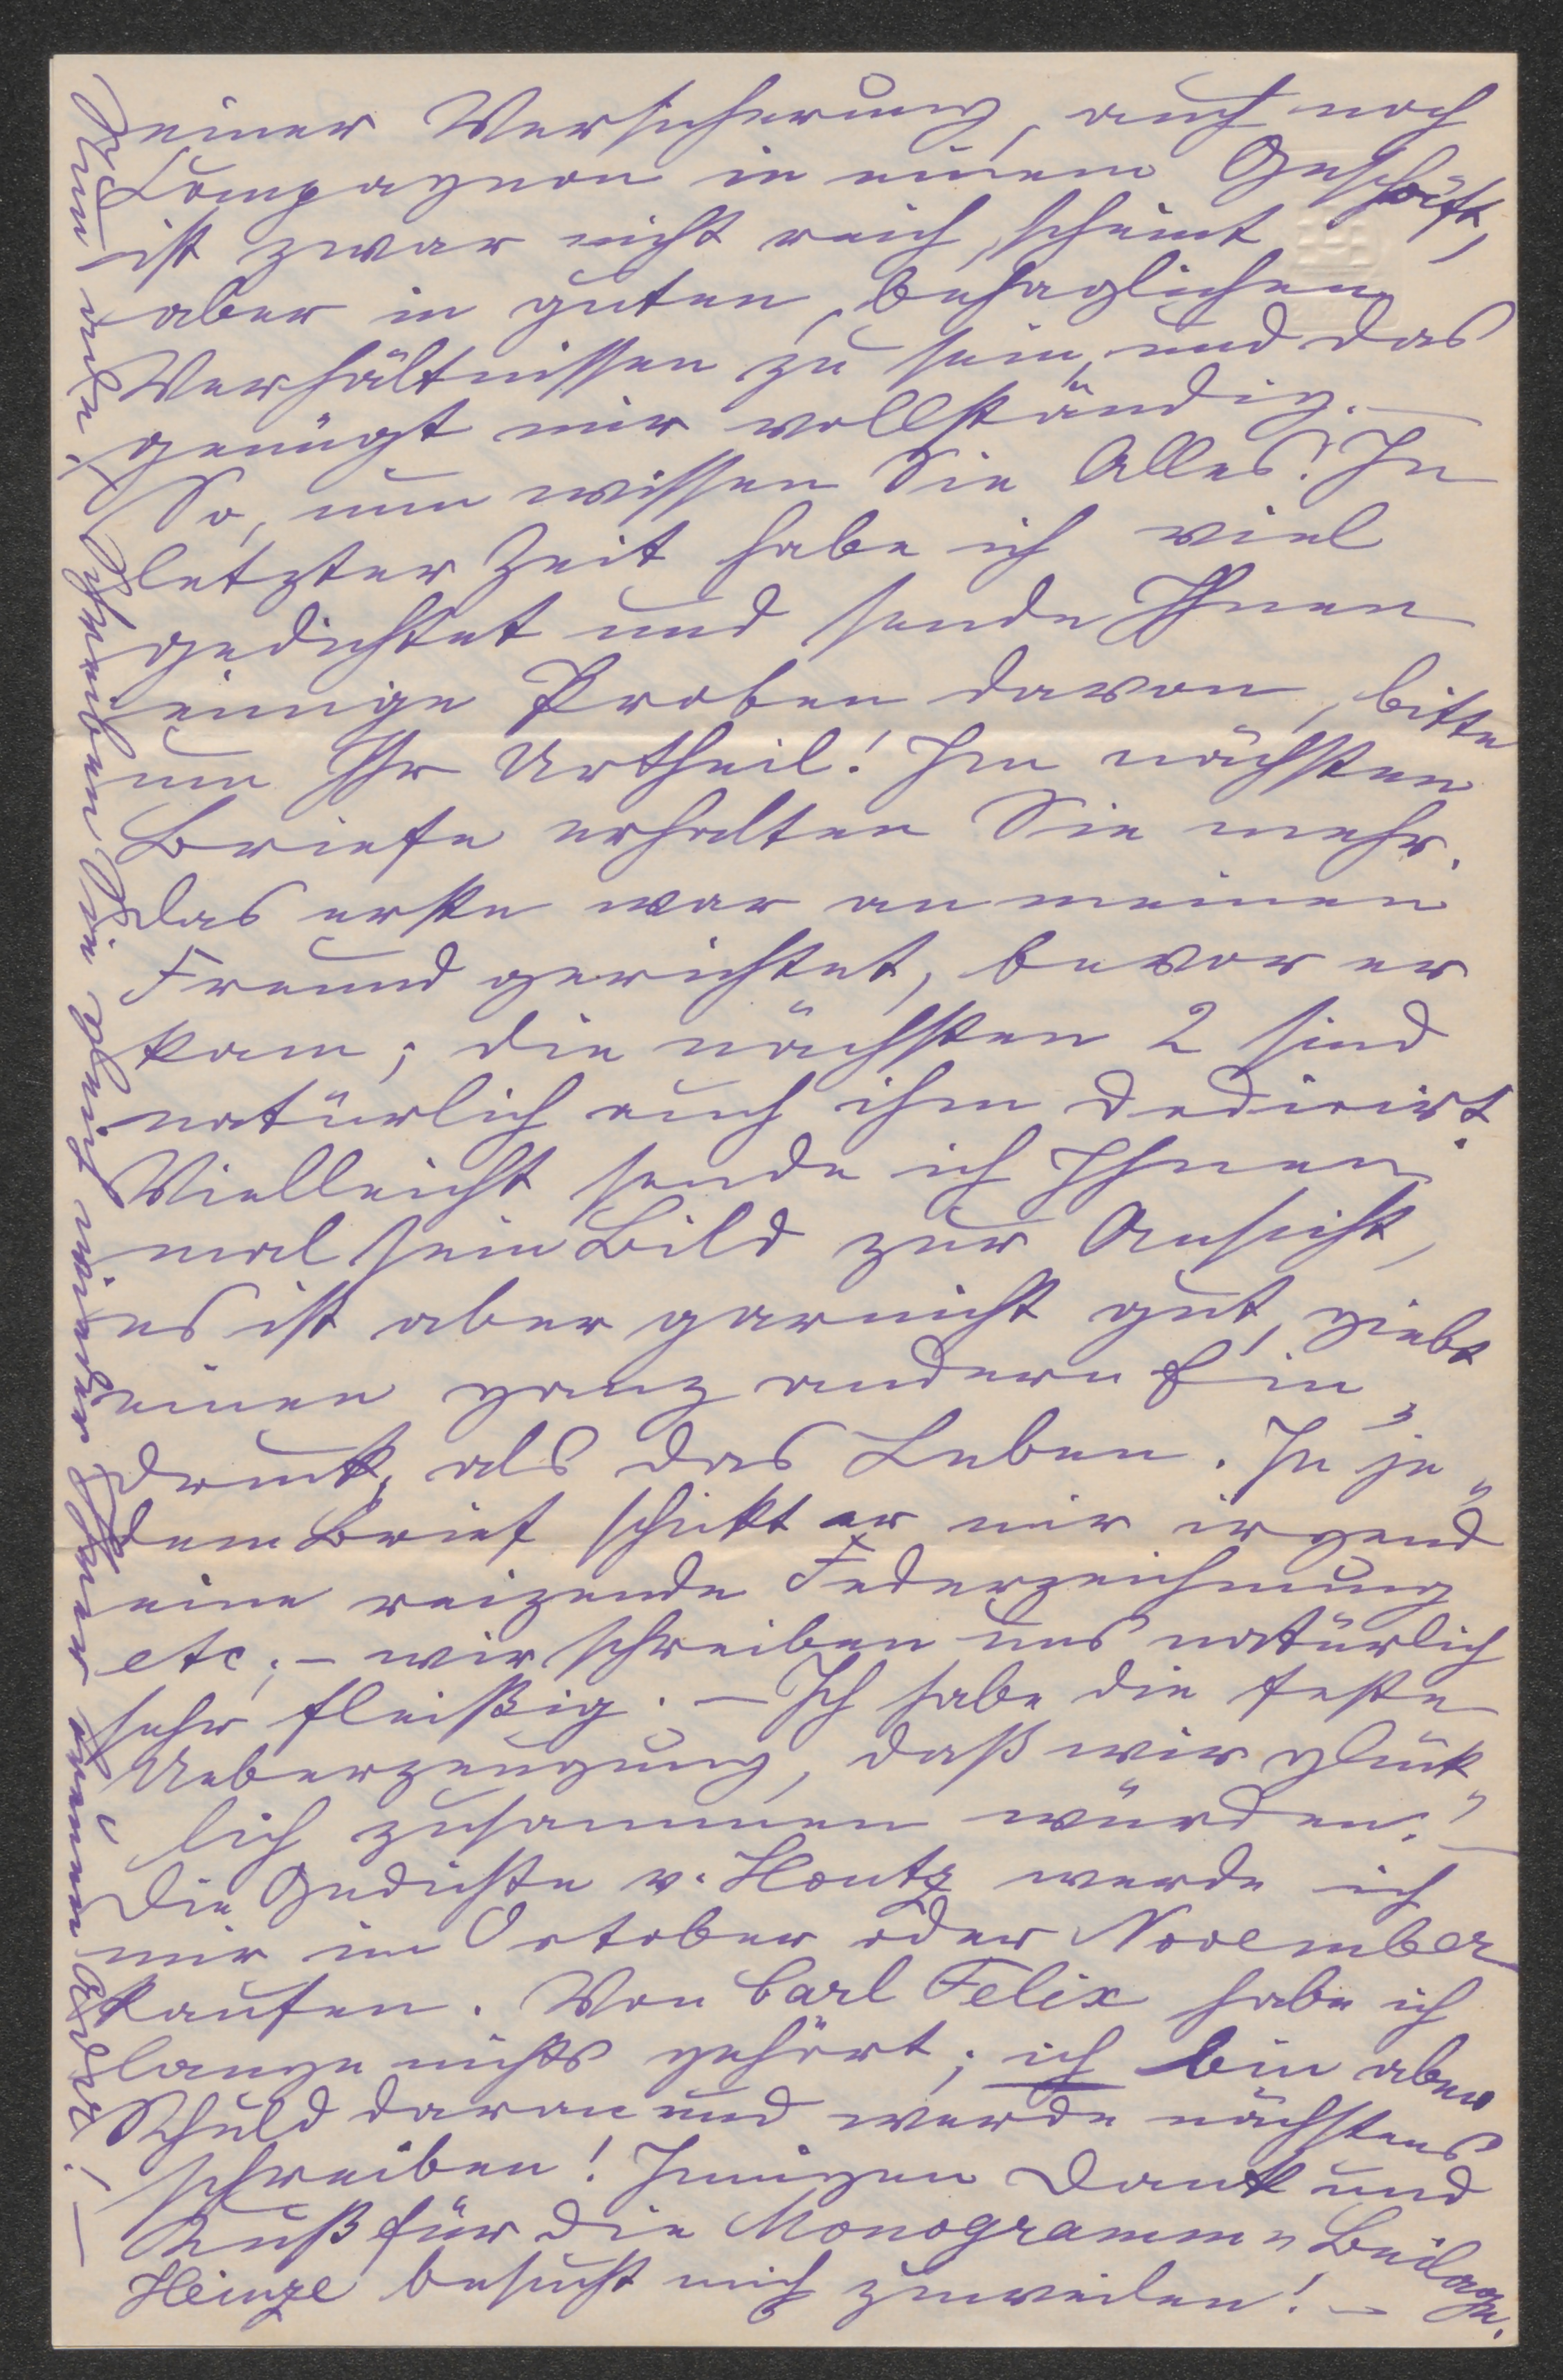 einer Versicherung, auch noch
Compagnon in einem Geschäft,
ist zwar nicht reich, scheint
aber in guten, behaglichen
Verhältnissen zu sein, und das
genügt mir vollständig. —
So, nun wissen Sie Alles! In
letzter Zeit habe ich viel
gedichtet und sende Ihnen
einige Proben davon, bitte
um Ihr Urtheil! Im nächsten
Briefe erhalten Sie mehr.
Das erste war an meinen
Freund gerichtet, bevor er
kam; die nächsten 2 sind
natürlich auch ihm dedicirt.
Vielleicht sende ich Ihnen
mal sein Bild zur Ansicht,
es ist aber garnicht gut, giebt
einen ganz andern Ein„
druck, als das Leben. In je„
dem Brief schickt er mir irgend
eine reizende Federzeichnung
etc; – wir schreiben uns natürlich
sehr fleißig. — Ich habe die feste
Ueberzeugung, daß wir glück„
lich zusammen würden! —
Die Gedichte v. Hontz werde ich
mir im October oder November
kaufen. Von Carl Felix habe ich
lange nichts gehört; ich bin aber
Schuld daran und werde nächstens
schreiben! Innigen Dank und
Kuß für die Monogramm„Beilage.
Heinze besucht mich zuweilen! —
Nun aber, schreiben Sie gleich wieder Ihrer treuen Adda! —